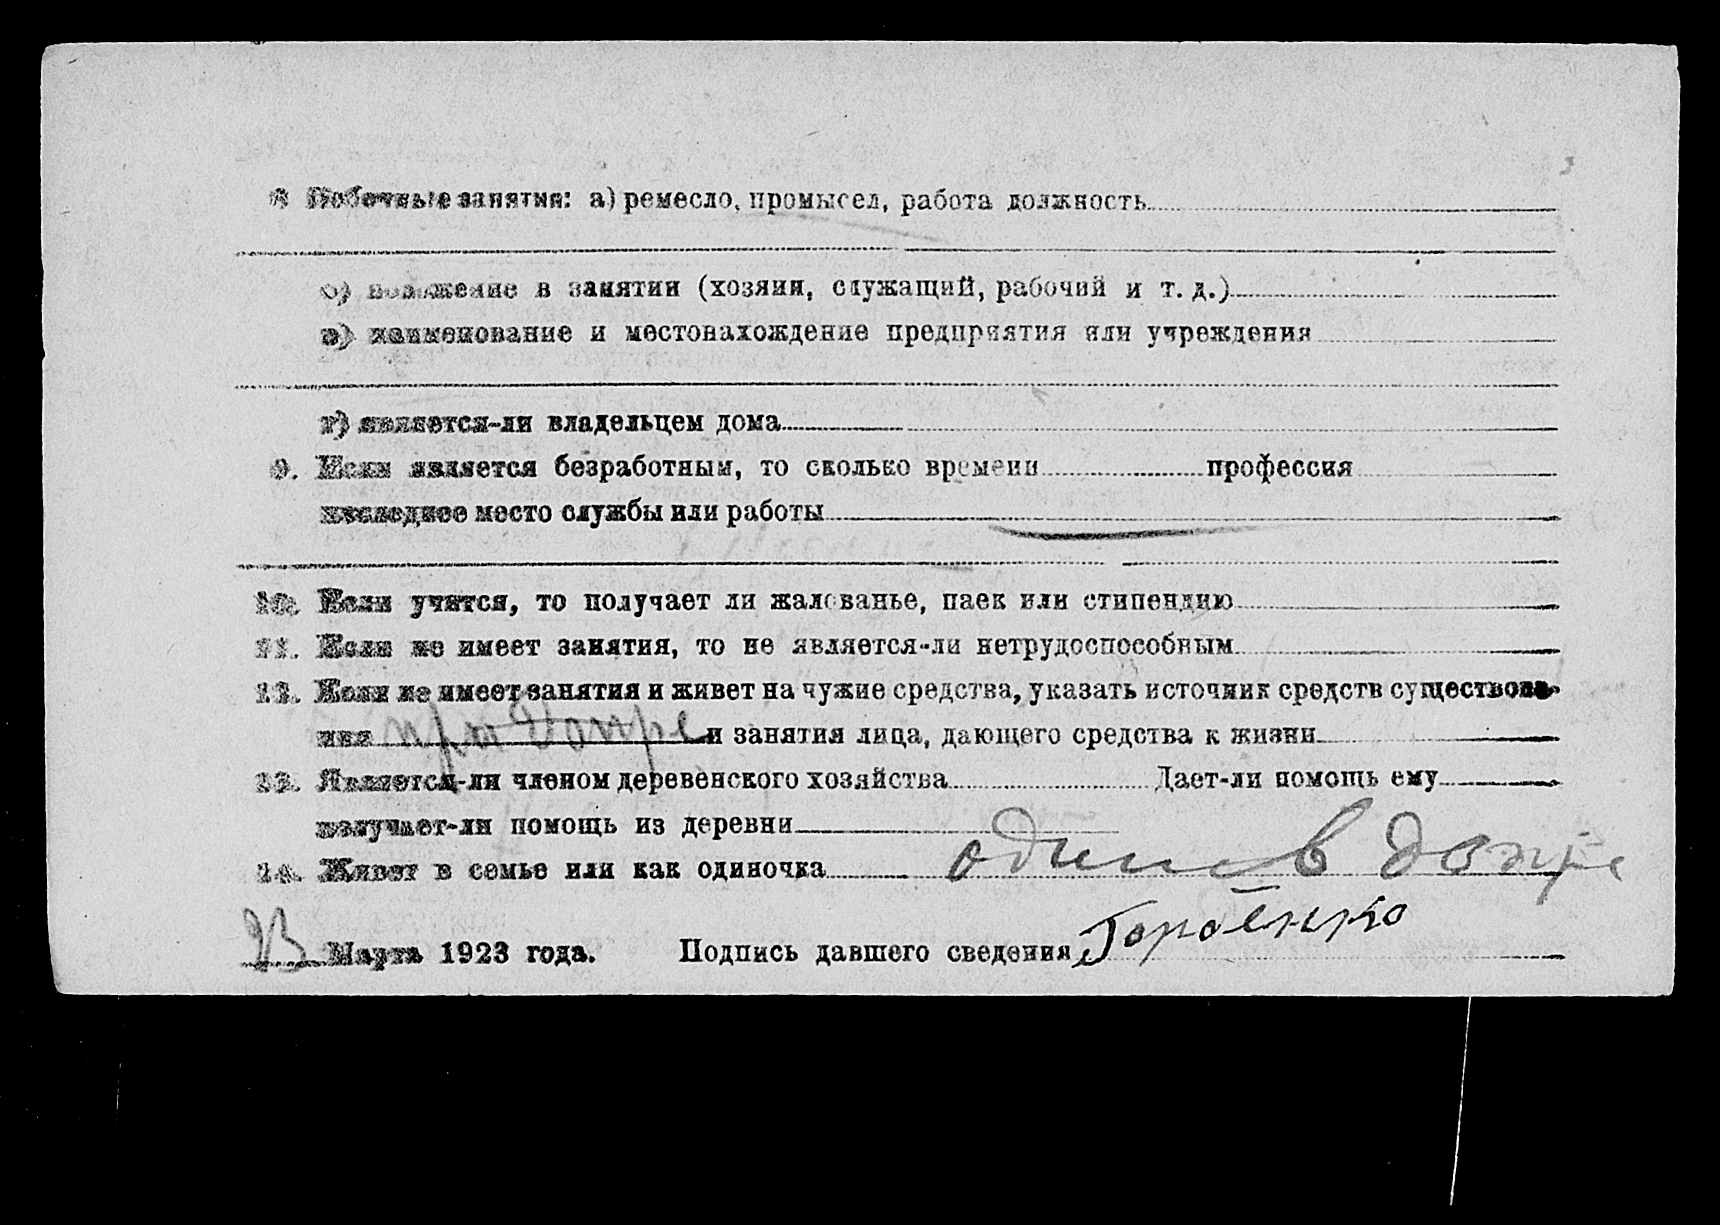 8 Побочные занятия: а) ремесло, промысел, работа должность
б) положение в занятии (хозяин, служащий, рабочий и т. д.)
в) наименование и местонахождение предприятия или учреждения
г) является-ли владельцем дома
9. Если является безработным, то сколько времени профессия
последнее место службы или работы
10. Если учится, то получает ли жалованье, паек или стипендию
11. Если не имеет занятия, то не является-ли нетрудоспособным
12. Если не имеет занятия и живет на чужие средства, указать источник средств существова-
ния при Допре и занятия лица, дающего средства к жизни
13. Является-ли членом деревенского хозяйства Дает-ли помощь ему
получает-ли помощь из деревни
14. Живет в семье или как одиночка один в допре
23 Марта 1923 года. Подпись давшего сведения